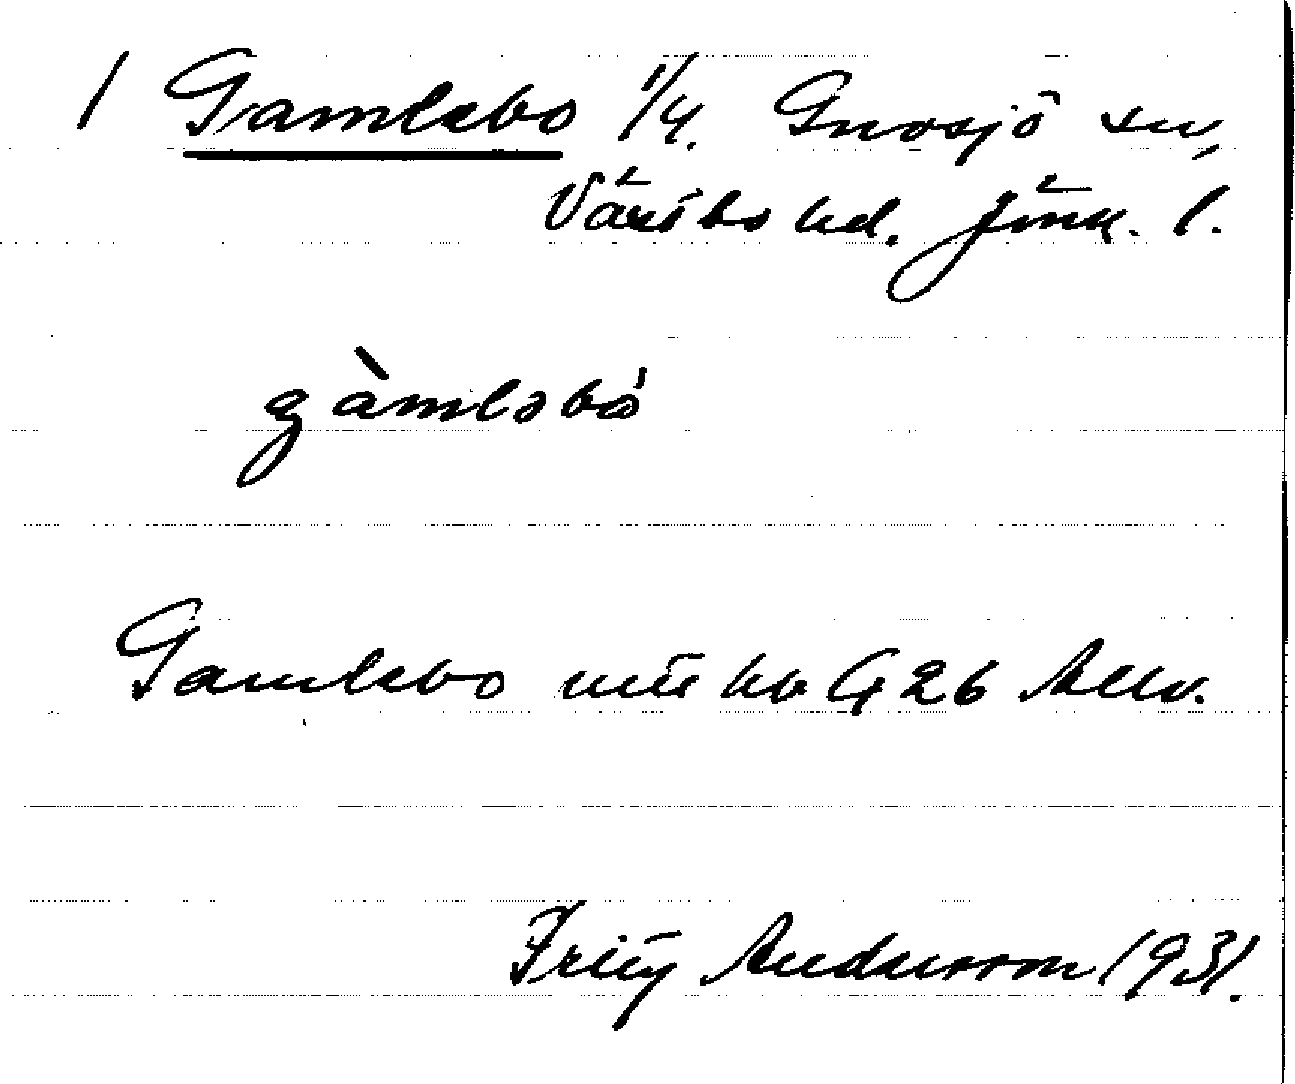 1 Gamlebo 1/4. Gnosjö sn,
Västbo hd. Jönk. l.
gàmləbó
Gamlebo G 26
Fritz Andersson 1931.